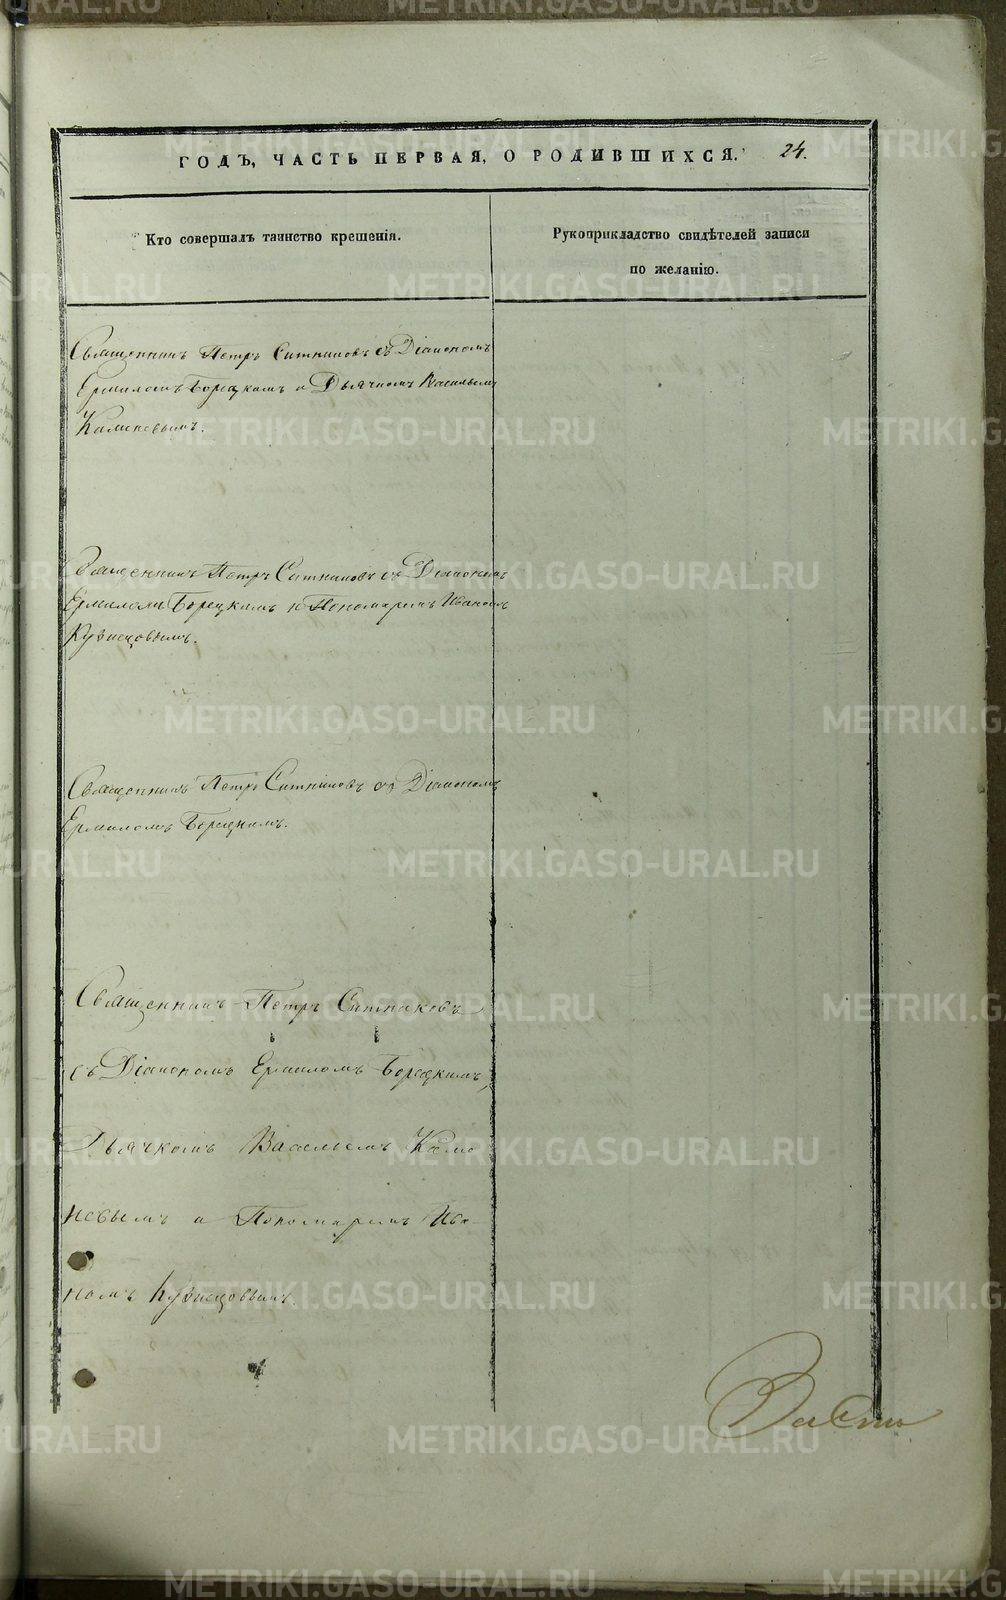 ГОДЪ, ЧАСТЬ ПЕРВАЯ, О РОДИВШИХСЯ. 24.
Кто совершалъ таинство крещенія.
Рукоприкладство свидѣтелей записи
по желанію.
Священникъ Петръ Ситниковъ съ Діакономъ
Ермиломъ Борецкимъ и Дьячкомъ Васильемъ
Каменевымъ.
Священникъ Петръ Ситниковъ съ Діакономъ
Ермиломъ Борецкимъ и Пономаремъ Иваномъ
Кузнецовымъ.
Священникъ Петръ Ситниковъ съ Діакономъ
Ермиломъ Борецкимъ.
Священникъ Петръ Ситниковъ
съ Діакономъ Ермиломъ Борецкимъ,
Дьячкомъ Васильемъ Каме
невымъ и Пономаремъ Ива-
номъ Кузнецовымъ.
METRIKI.GASO-URAL.RU